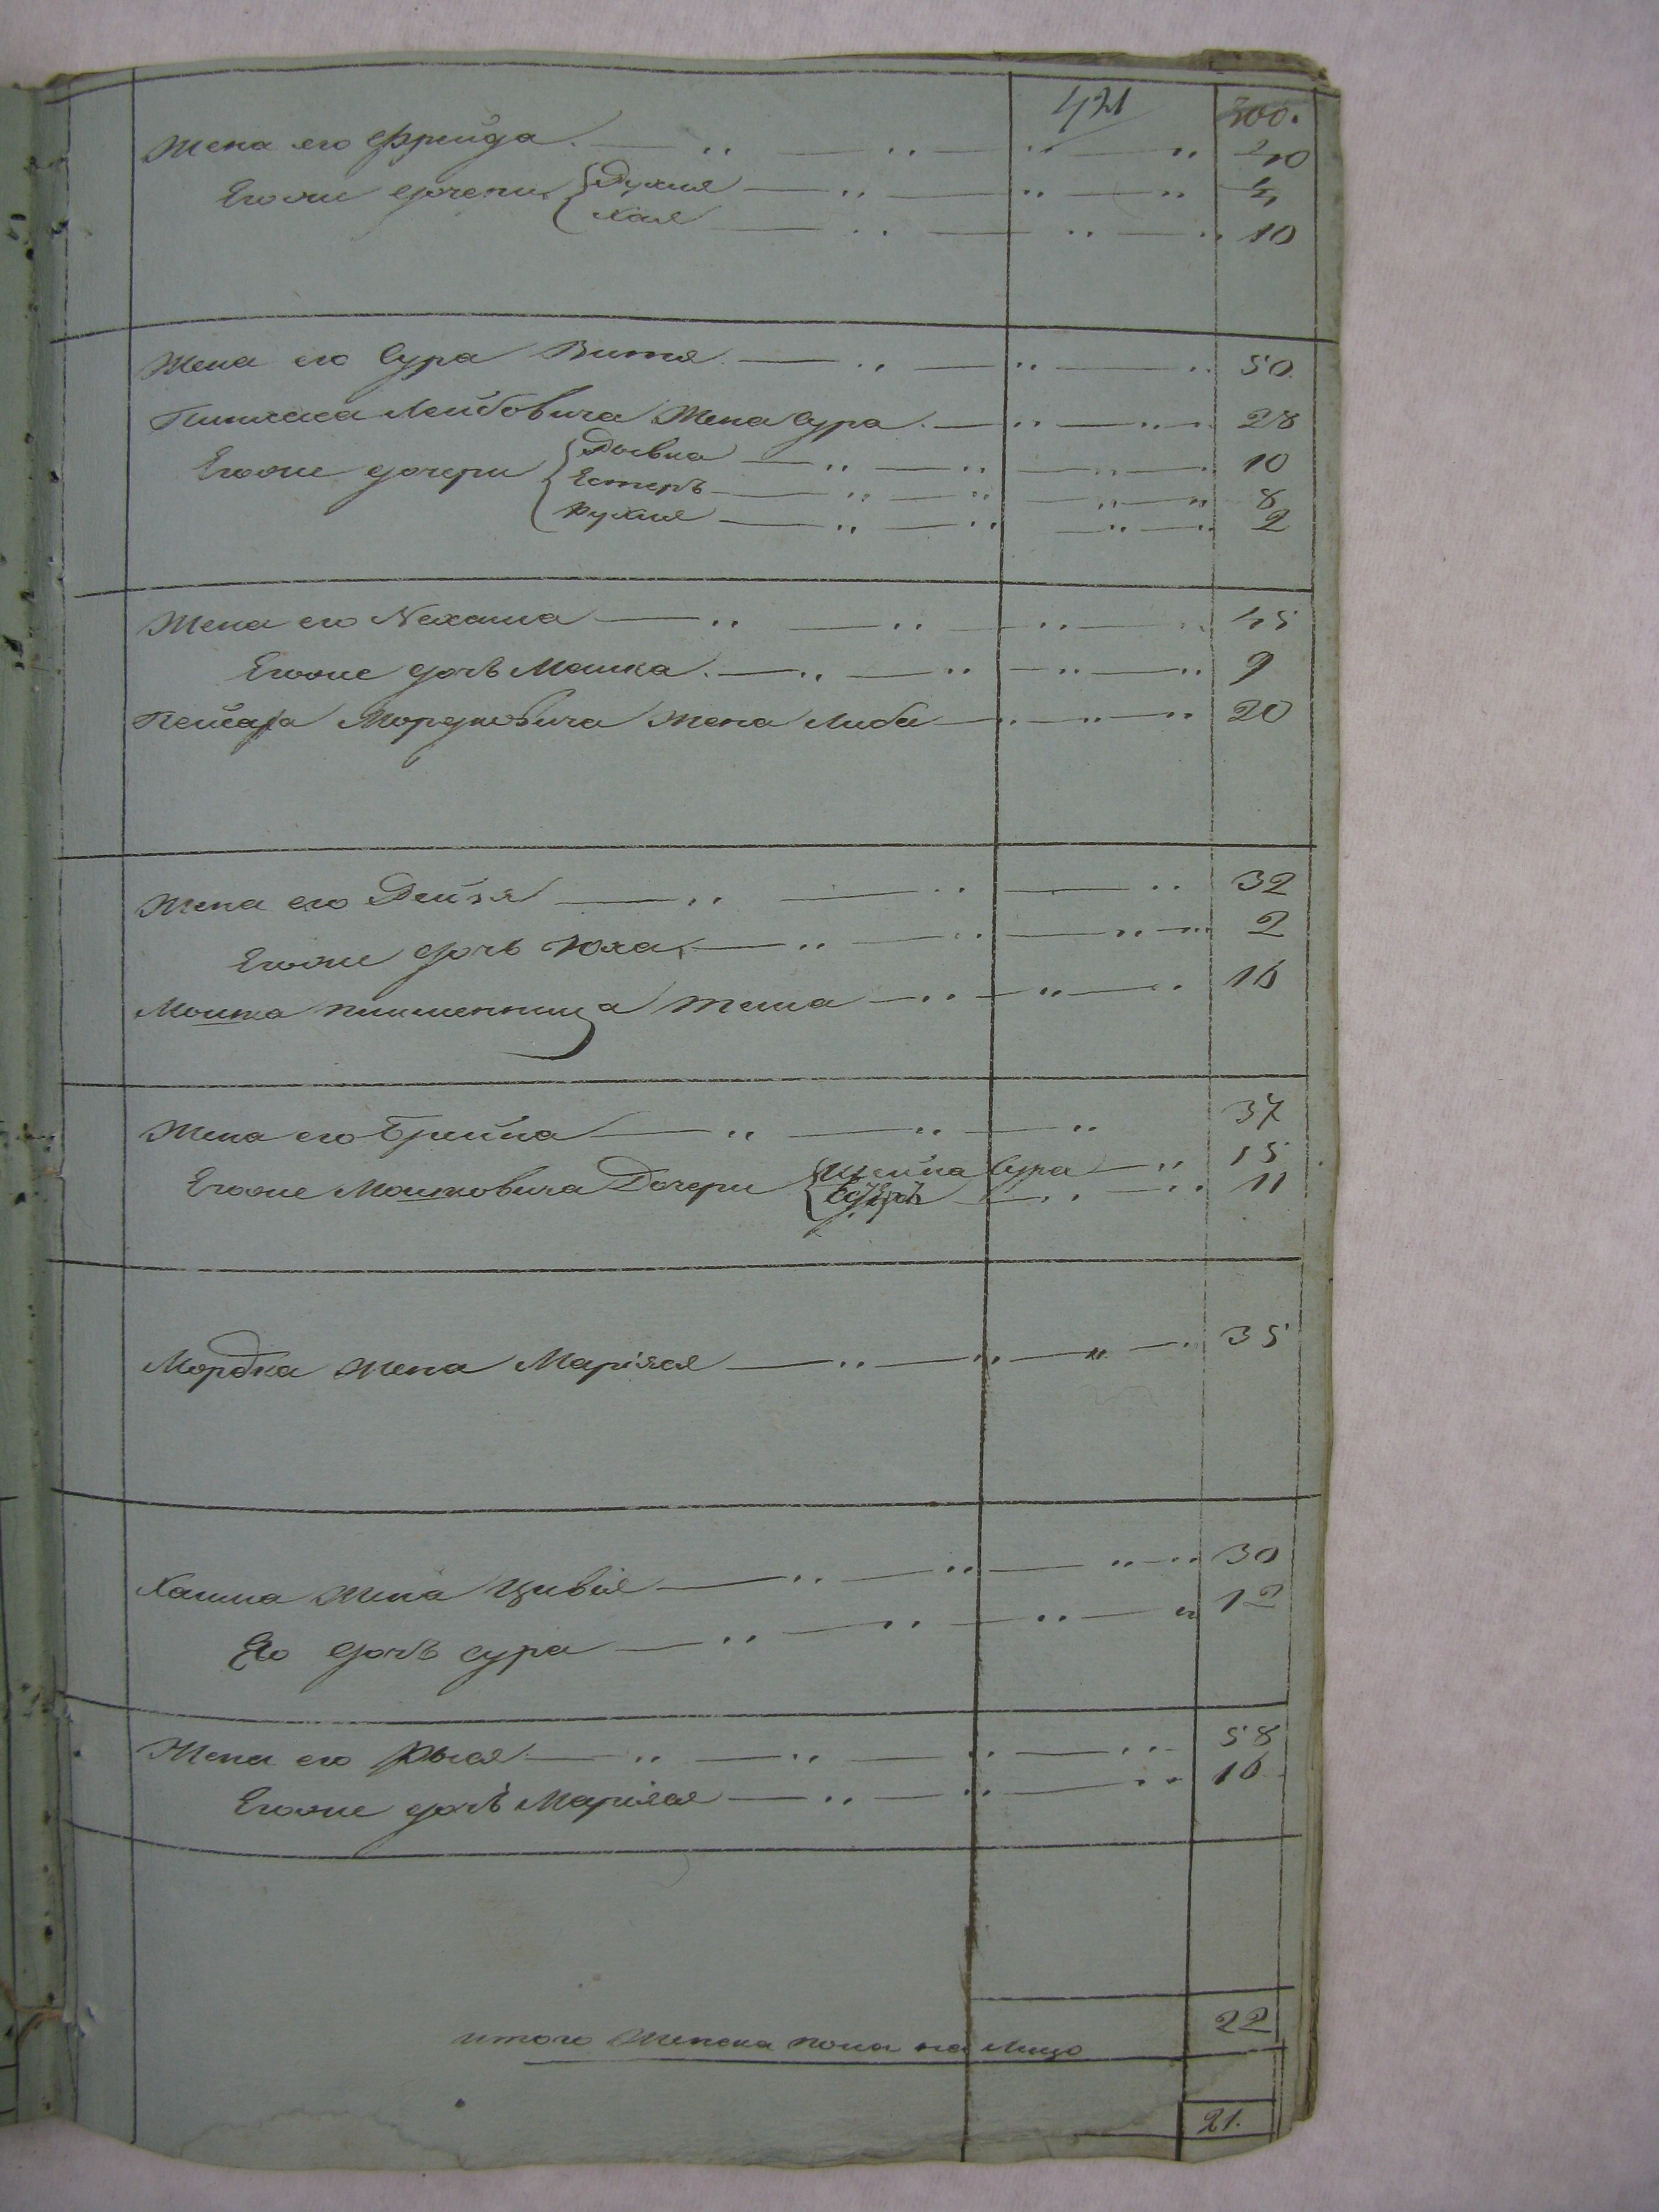 421 300.
Жена его Фрейда 40
Егоже дочери Рухля 4
Хая 10
Жена его Сура Витя 50
Пинхаса Лейбовича Жена Сура 28
Егоже дочери Двейна 10
Естерь 8
Рухля 2
Жена его Нехама 45
Егоже дочь Машка 9
Пейсаха Мордуховича жена Либа 20
Жена его Дейзя 32
Егоже дочь Юха 2
Мошка племенница Тема 16
Жена его Брейна 37
Егоже Мошковича Дочери Шейна Сура 15
Естерь 11
Мордка жена Марiяся 35
Хаима жена Цивiя 30
Его дочь сура 12
Жена его Рыся 58
Егоже дочь Марiяся 16
итого Женска пола на лицо 22
21.